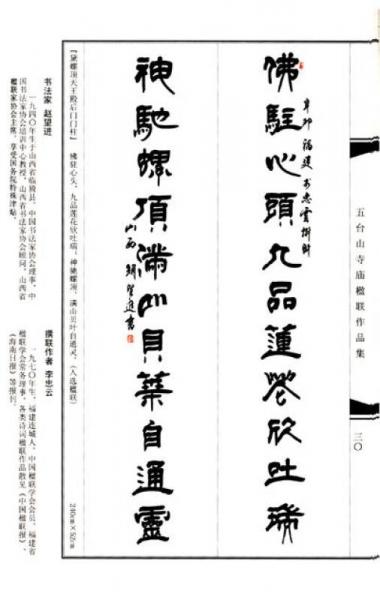 五台山寺庙楹联作品集
三〇
佛駐心頭九品蓮花欣吐瑞
辛卯 福建李忠雲撰聯
神馳螺頂滿山貝葉自通靈
山西趙望進書
『黛螺顶天王殿后门门柱』 佛驻心头，九品莲花欣吐瑞；神驰螺顶，满山贝叶自通灵。（入选楹联）
240cm×52cm
书法家 赵望进
一九四〇年生于山西省临猗县，中国书法家协会理事，中
国书法家协会培训中心教授，山西省书法家协会顾问，山西省
楹联家协会主席，享受国务院特殊津贴。
撰联作者 李忠云
一九七〇年生，福建连城人，中国楹联学会会员，福建省
楹联学会常务理事，各类诗词楹联作品散见《中国楹联报》、
《海南日报》等报刊。